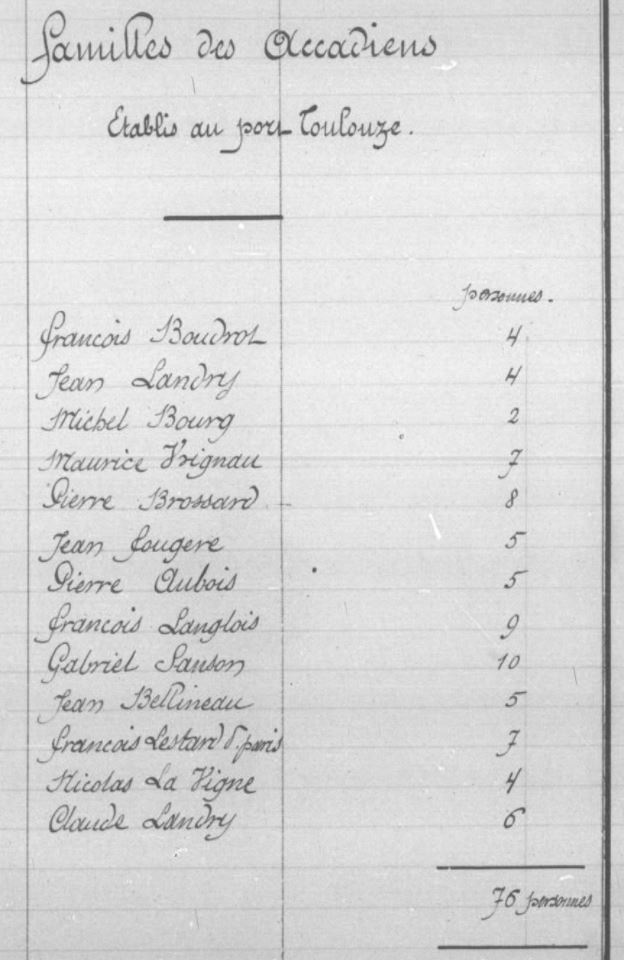 familles des Accadiens
Etablis au port Toulouze.
personnes.
francois Boudrot 4
Jean Landry 4
Michel Bourg 2
Maurice Vrignau 7
Pierre Brossard 8
Jean fougere 5
Pierre Aubois 5
francois Langlois 9
Gabriel Sanson 10
Jean Bellineau 5
francois Lestard d. paris 7
Nicolas La Vigne 4
Claude Landry 6
76 personnes